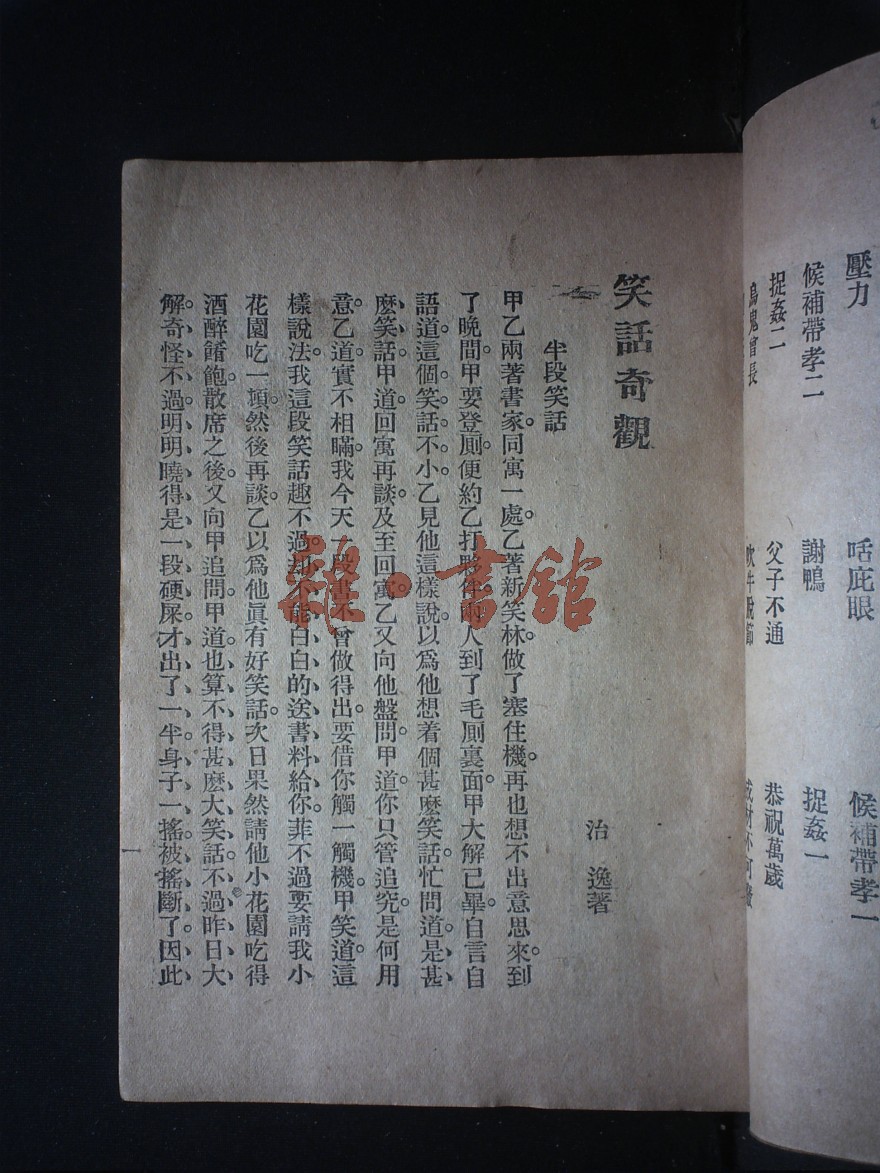 壓力
咶庇眼
候補帶孝一
候補帶孝二
謝鴨
捉姦一
捉姦二
父子不通
恭祝萬歲
笑話奇觀
治逸著
半段笑話
甲乙兩著書家。同寓一處。乙著新笑林。做了塞住機。再也想不出意思來。到
了晚間。甲要登厠。便約乙打夥伴。兩人到了毛厠裏面。甲大解已畢。自言自
語道。這個笑話不小。乙見他這樣說。以爲他想着個甚麽笑話。忙問道。是甚
麽笑話。甲道。回寓再談。及至回寓。乙又向他盤問。甲道。你只管追究。是何用
意。乙道。實不相瞞。我今天一段書不曾做得出。要借你觸一觸機。甲笑道。這
樣說法。我這段笑話趣不過。却不能白白的送書料給你。菲不過要請我小
花園吃一頓。然後再談。乙以爲他眞有好笑話。次日果然請他小花園吃得
酒醉餚飽。散席之後。又向甲追問。甲道。也算不得甚麽大笑話。不過昨日大
解。奇怪不過。明明曉得是一段硬屎。才出了一半。身子一搖。被搖斷了。因此
一
雜·書館